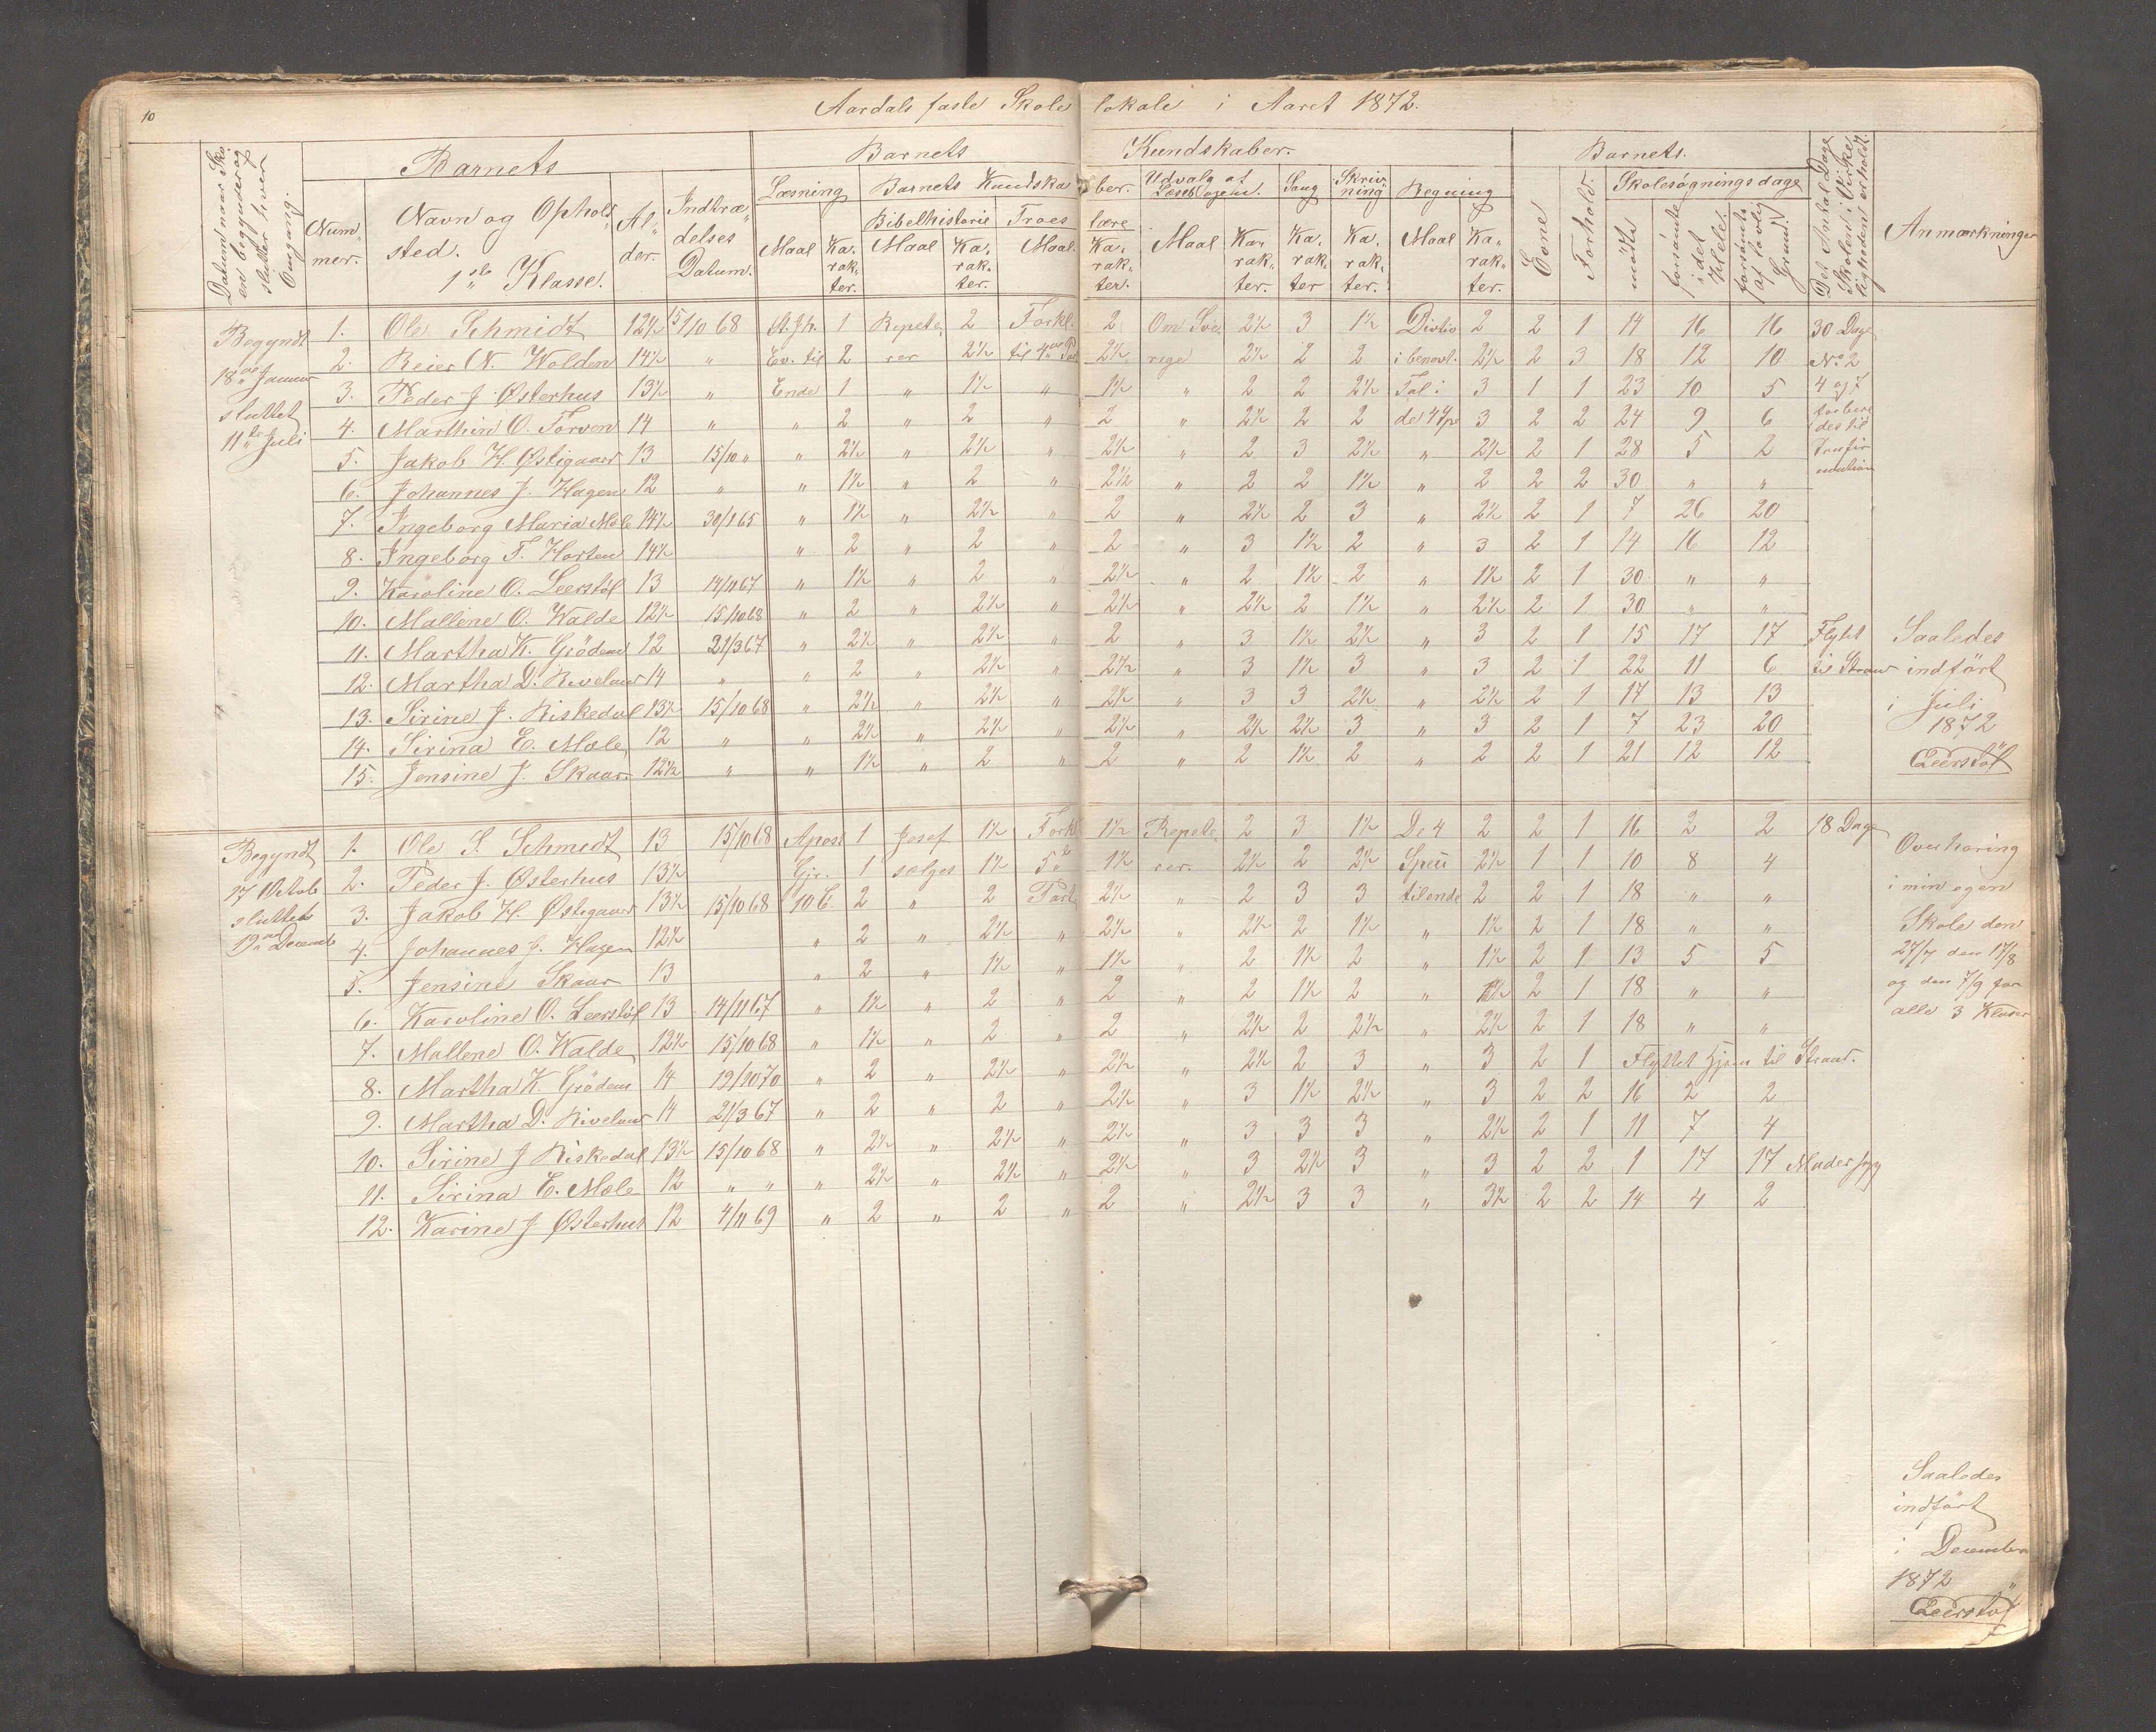 10
Aardals faste Skole lokale i Aaret 1872.
Datum naar Sko„ en begynder og slutter hver Omgang.
Barnets
Num„ mer.
Navn og Ophold„ sted. 1ste Klasse.
Al„ der.
Indtræ„ delses Datum.
Barnets Kundskaber.
Læsning
Maal Ka„ rak„ ter.
Barnets Kundska ber.
Bibelhistorie
Maal Ka„ rak„ ter.
Troes lære
Maal. Ka„ rak„ ter.
Udvalg af Læsebogen.
Maal Ka„ rak„ ter.
Sang
Ka„ rak„ ter
Skriv„ ning
Ka„ rak„ ter.
Regning
Maal Ka„ rak„ ter.
Barnets.
Evne
Forhold.
Skolesøgningsdage
mödte
forsömte i det Hele.
forsömte af lovlig Grund.
Det Antal Dage Skolen i Virke„ ligheden er holdt.
Anmærkninger
Begyndt 18de Januar sluttet 11te Juli
1. Ole Schmidt 12½ 15/10 68 St. Jh. 1 Repete„ 2 Forkl. 2 Om Sve„ 2½ 3 1½ Divtio 2 2 1 14 16 16 30 Dage
2. Reier N. Wolden 14½ „ Ev. til 2 rer 2½ til 4de Pa 2½ rige 2½ 2 2 i benævt. 2½ 2 3 18 12 10 No 2
3. Peder J. Østerhus 13½ „ Ende 1 „ 1½ „ 1½ „ 2 2 2½ Tal i 3 1 1 23 10 5 4 og 7
4. Marthin O. Torven 14 „ „ 2 „ 2 „ 2 „ 2½ 2 2 de 4 Spe 3 2 2 24 9 6
5. Jakob H. Østigaard 13 15/10 „ „ 2½ „ 2½ „ 2½ „ 2 3 2½ „ 2½ 2 1 28 5 2
6. Johannes J. Hagen 12 „ „ 1½ „ 2 „ 2½ „ 2 2 1½ „ 2 2 2 30 „ „
7. Ingeborg Maria Mæle 14½ 30/1 65 „ 1½ „ 2½ „ 2 „ 2½ 2 3 „ 2½ 2 1 7 26 20
8. Ingeborg T. Horten 14½ „ 2 „ 2 „ 2 „ 3 1½ 2 „ 3 2 1 14 16 12
9. Karoline O. Leerstöl 13 14/11 67 „ 1½ „ 2 „ 2½ „ 2 1½ 2 „ 1½ 2 1 30 „ „
10. Mallene O. Walde 12½ 15/10 68 „ 2 „ 2½ „ 2½ „ 2½ 2 1½ „ 2½ 2 1 30 „ „
11. Martha K. Grödem 12 21/3 67 „ 2½ „ 2½ „ 2 „ 3 1½ 2½ „ 3 2 1 15 17 17 Flyttet
12. Martha D. Riveland 14 „ „ 2 „ 2½ „ 2½ „ 3 1½ 3 „ 3 2 1 22 11 6 til Strand
13. Sirine J. Riskedal 13½ 15/10 68 „ 2½ „ 2½ „ 2½ „ 3 3 2½ „ 2½ 2 1 17 13 13
14. Sirina E. Mæle 12 „ „ 2½ „ 2½ „ 2½ „ 2½ 2½ 3 „ 3 2 1 7 23 20
15. Jensine J. Skaar 12½ „ „ 1½ „ 2 „ 2 „ 2 1½ 2 „ 2 2 1 21 12 12
Saaledes
indfört
i Juli
1872
Leerstöl
Begyndt 17 Octob sluttet 19de Decemb
1. Ole S. Schmidt 13 15/10 68 Apost 1 Josef 1½ Forkl 1½ Repete„ 2 3 1½ De 4 2 2 1 16 2 2 18 Dage
2. Peder J. Østerhus 13½ Gjr. 1 sælges 1½ 5te 1½ rer. 2½ 2 2½ Speci 2½ 1 1 10 8 4
3. Jakob H. Østegaard 13½ 15/10 68 10 C. 2 „ 2 Part 2½ „ 2 3 3 tilende 2 2 1 18 „ „
4. Johannes J. Hagen 12½ „ 2 „ 2½ „ 2½ „ 2½ 2 1½ „ 1½ 2 1 18 „ „
5. Jensine Skaar 13 „ 2 „ 1½ „ 1½ „ 2 1½ 2 „ 1½ 2 1 13 5 5
6. Karoline O. Leerstöl 13 14/11 67 „ 1½ „ 2 „ 2 „ 2 1½ 2 „ 1½ 2 1 18 „ „
7. Mallene O. Walde 12½ 15/10 68 „ 1½ „ 2 „ 2 „ 2½ 2 2½ „ 2½ 2 1 18 „ „
8. Martha K. Grödem 14 19/10 70 „ 2 „ 2½ „ 2½ „ 2½ 2 3 „ 3 2 1 Flyttet hjem til Strand.
9. Martha D. Riveland 14 21/3 67 „ 2 „ 2 „ 2½ „ 3 1½ 2½ „ 3 2 2 16 2 2
10. Sirine J Riskedal 13½ 15/10 68 „ 2½ „ 2½ „ 2½ „ 3 3 3 „ 2½ 2 1 11 7 4
11. Sirina E. Mæle 12 „ „ „ 2½ „ 2½ „ 2½ „ 3 2½ 3 „ 3 2 2 1 17 17 Moder syg
12. Karine J. Østerhus 12 4/11 69 „ 2 „ 2 „ 2 „ 2½ 3 3 „ 3½ 2 2 14 4 2
Overhøring
i min egen
Skole den
27/7 den 17/8
og den 7/9 for
alle 3 Klasser
Saaledes
indfört
i December
1872
Leerstöl